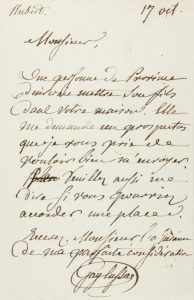 Hubert.
17 oct.
Monsieur,
Une personne de Province
désire mettre son fils
dans votre maison. Elle
me demande un prospectus
que je vous prie de
vouloir bien m'envoyer.
Veuillez aussi me
dire si vous pourriez
accorder une place.
Monsieur l'assurance
de ma parfaite considération
Gay-Lussac